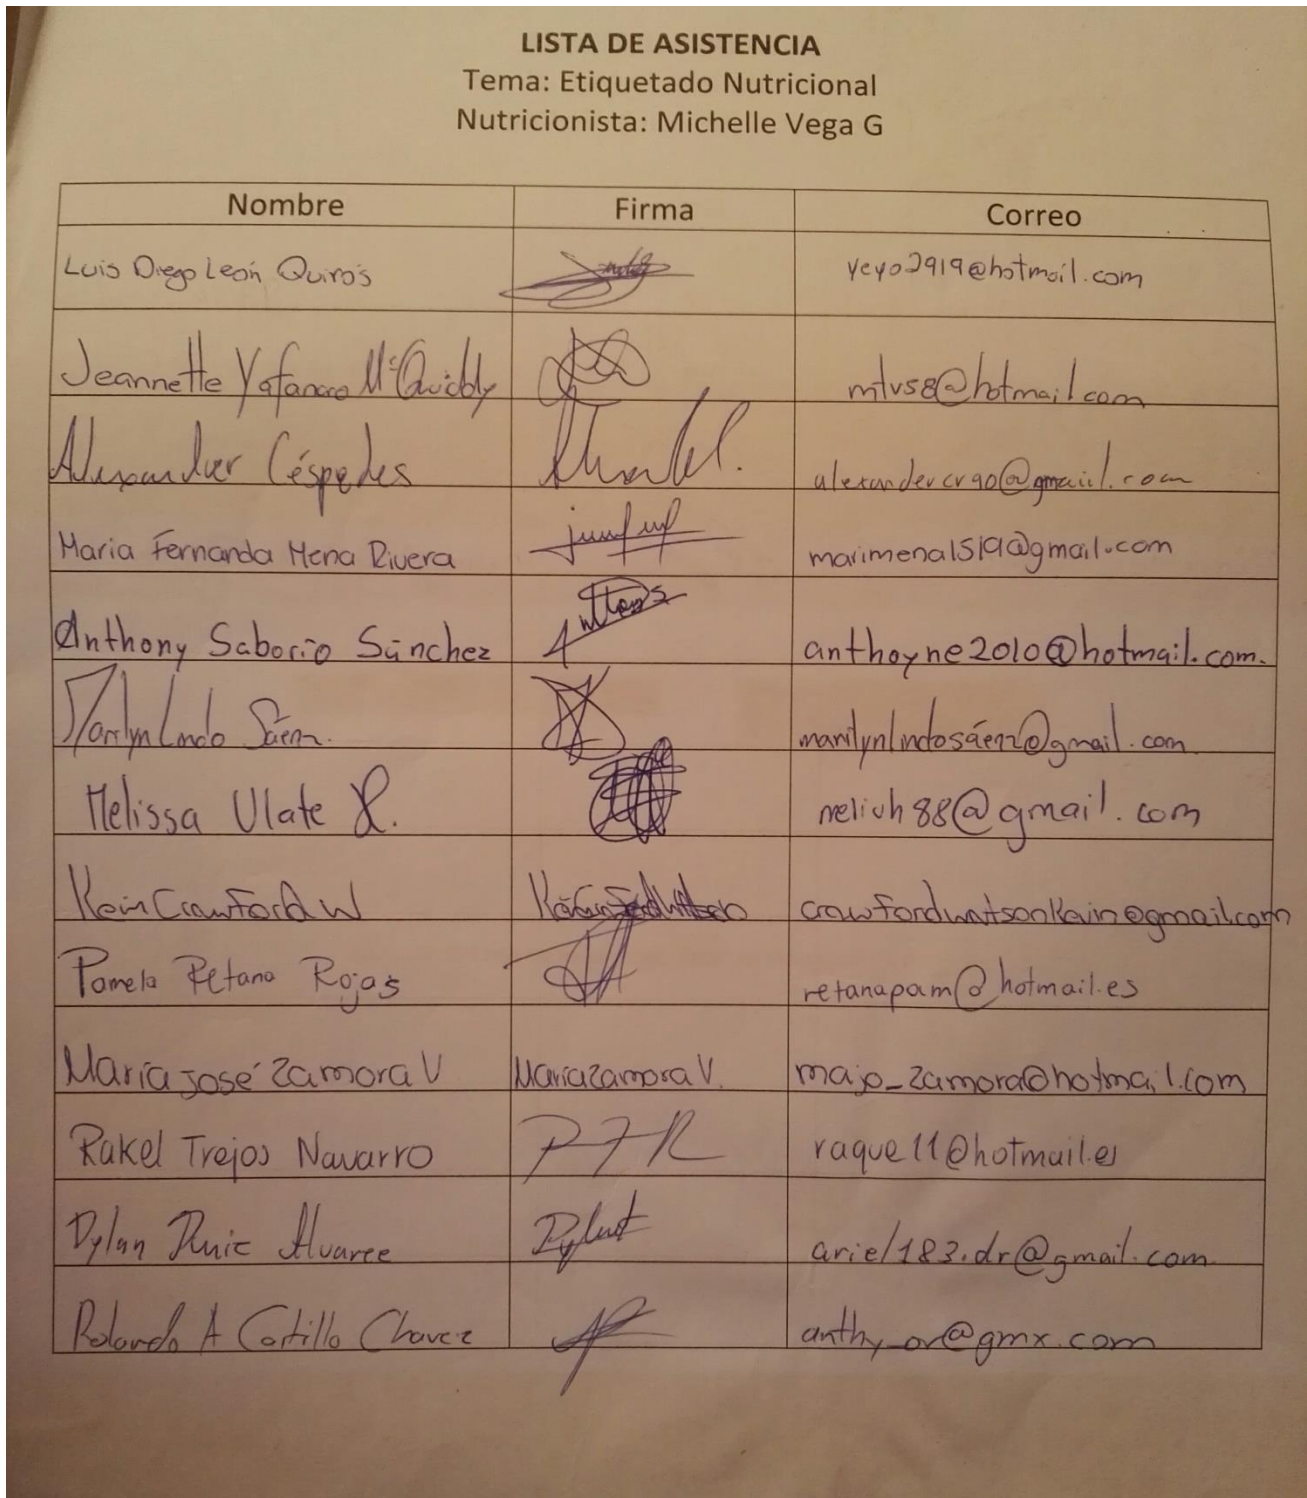 LISTA DE ASISTENCIA
Tema: Etiquetado Nutricional
Nutricionista: Michelle Vega G
Nombre Firma Correo
Luis Diego León Quirós yeyo2919@hotmail.com
Jeannette McQuiddy mtvs8@hotmail.com
Alexander Céspedes alexandercr90@gmail.com
Maria Fernanda Mena Rivera marimena1519@gmail.com
Anthony Saborío Sánchez anthoyne2010@hotmail.com.
Marilyn Lindo Sáenz. marilynlindosáenz@gmail.com
Melissa Ulate meliuh88@gmail.com
Crawford W crawfordwatsonkevin@gmail.com
Pamela Retana Rojas retanapam@hotmail.es
María José Zamora V María Zamora V. majo_zamora@hotmail.com
Rakel Trejos Navarro raque11@hotmail.es
Dylan Ruiz Alvarez ariel183.dr@gmail.com
Rolando A Castillo Chavez anthy_or@gmx.com